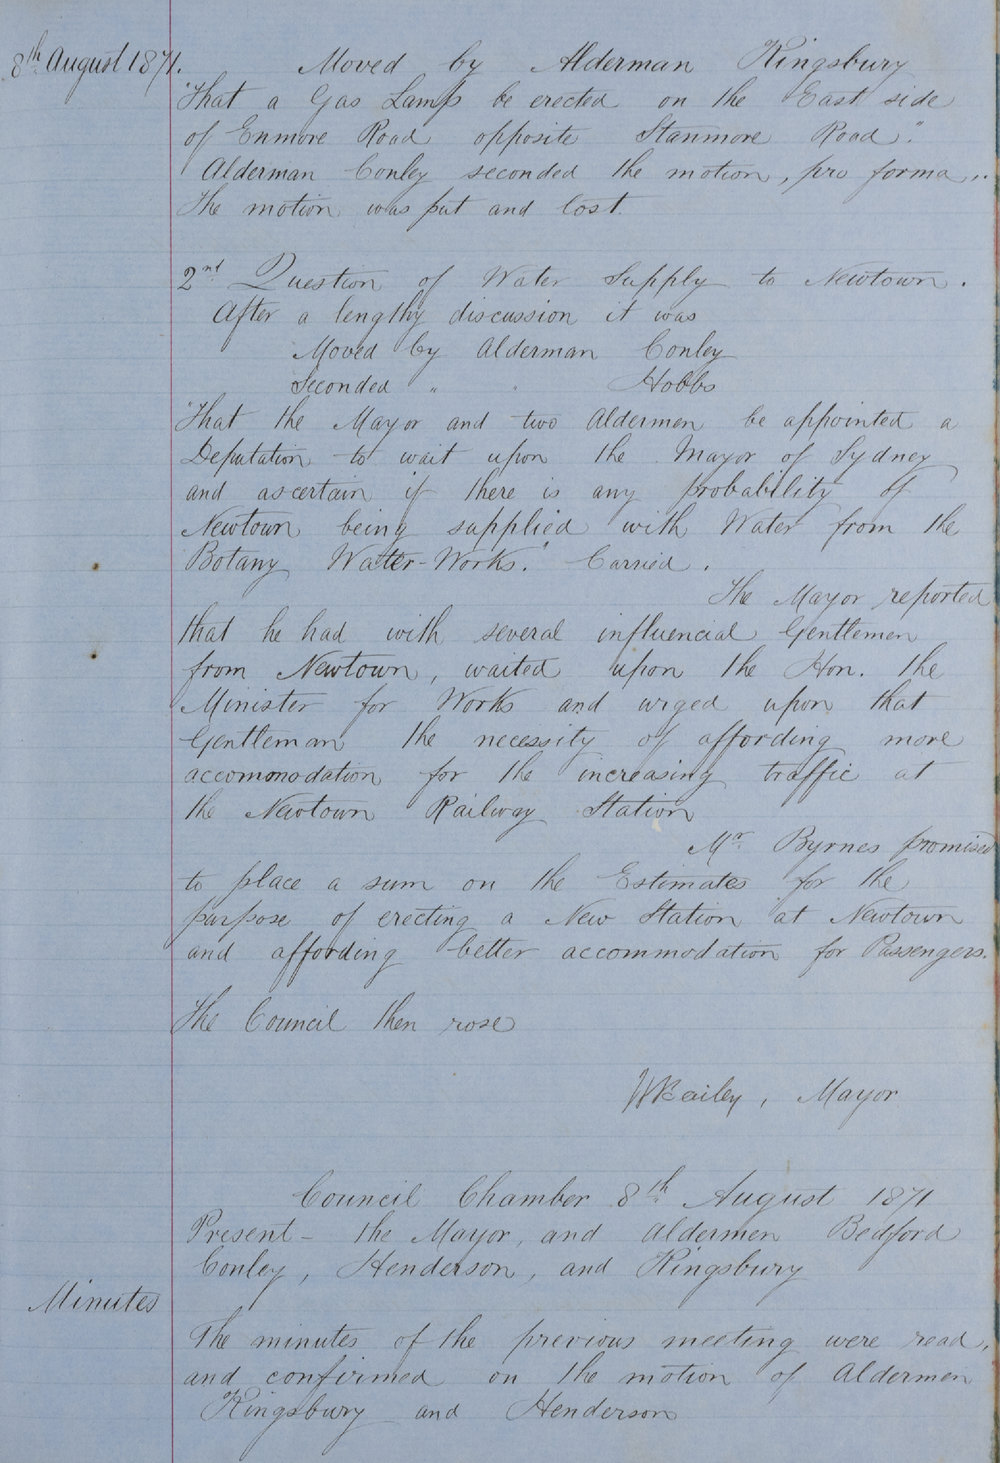 8th August 1871.
Moved by Alderman Kingsbury
"That a Gas Lamp be erected on the East side
of Enmore Road opposite Stanmore Road."
Alderman Conley seconded the motion, pro forma,..
The motion was put and lost.
2nd Question of Water Supply to Newtown.
After a lengthy discussion it was
Moved by Alderman Conley
Seconded " " Hobbs
"That the Mayor and two Aldermen be appointed a
Deputation to wait upon the Mayor of Sydney
and ascertain if there is any probability of
Newtown being supplied with Water from the
Botany Water-Works." Carried.
The Mayor reported
that he had with several influencial Gentlemen
from Newtown, waited upon the Hon. the
Minister for Works and urged upon that
Gentleman the necessity of affording more
accommodation for the increasing traffic at
the Newtown Railway Station
Mr. Byrnes promised
to place a sum on the Estimates for the
purpose of erecting a New Station at Newtown
and affording better accommodation for Passengers.
The Council then rose
WBailey, Mayor
Council Chamber 8th August 1871
Present - the Mayor, and Aldermen Bedford
Conley, Henderson, and Kingsbury
Minutes
The minutes of the previous meeting were read,
and confirmed on the motion of Aldermen
Kingsbury and Henderson